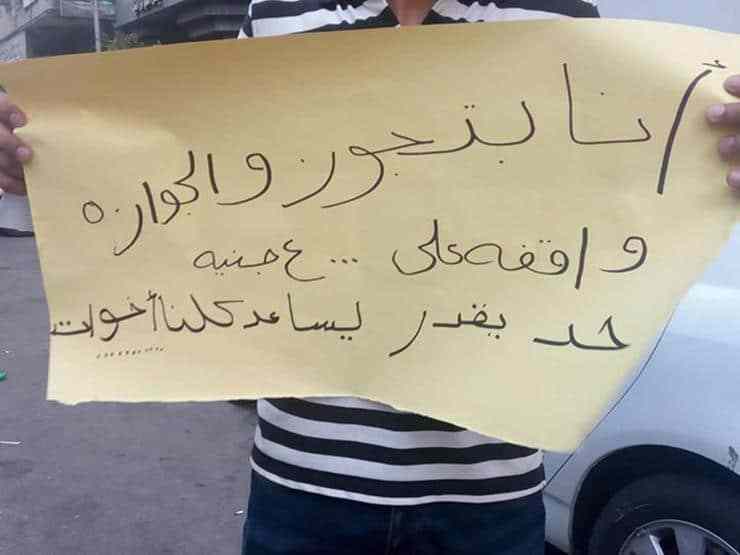 أنا بتجوز والجوازه
واقفه على ٤٠٠٠ جنيه
حد يقدر يساعد كلنا أخوات